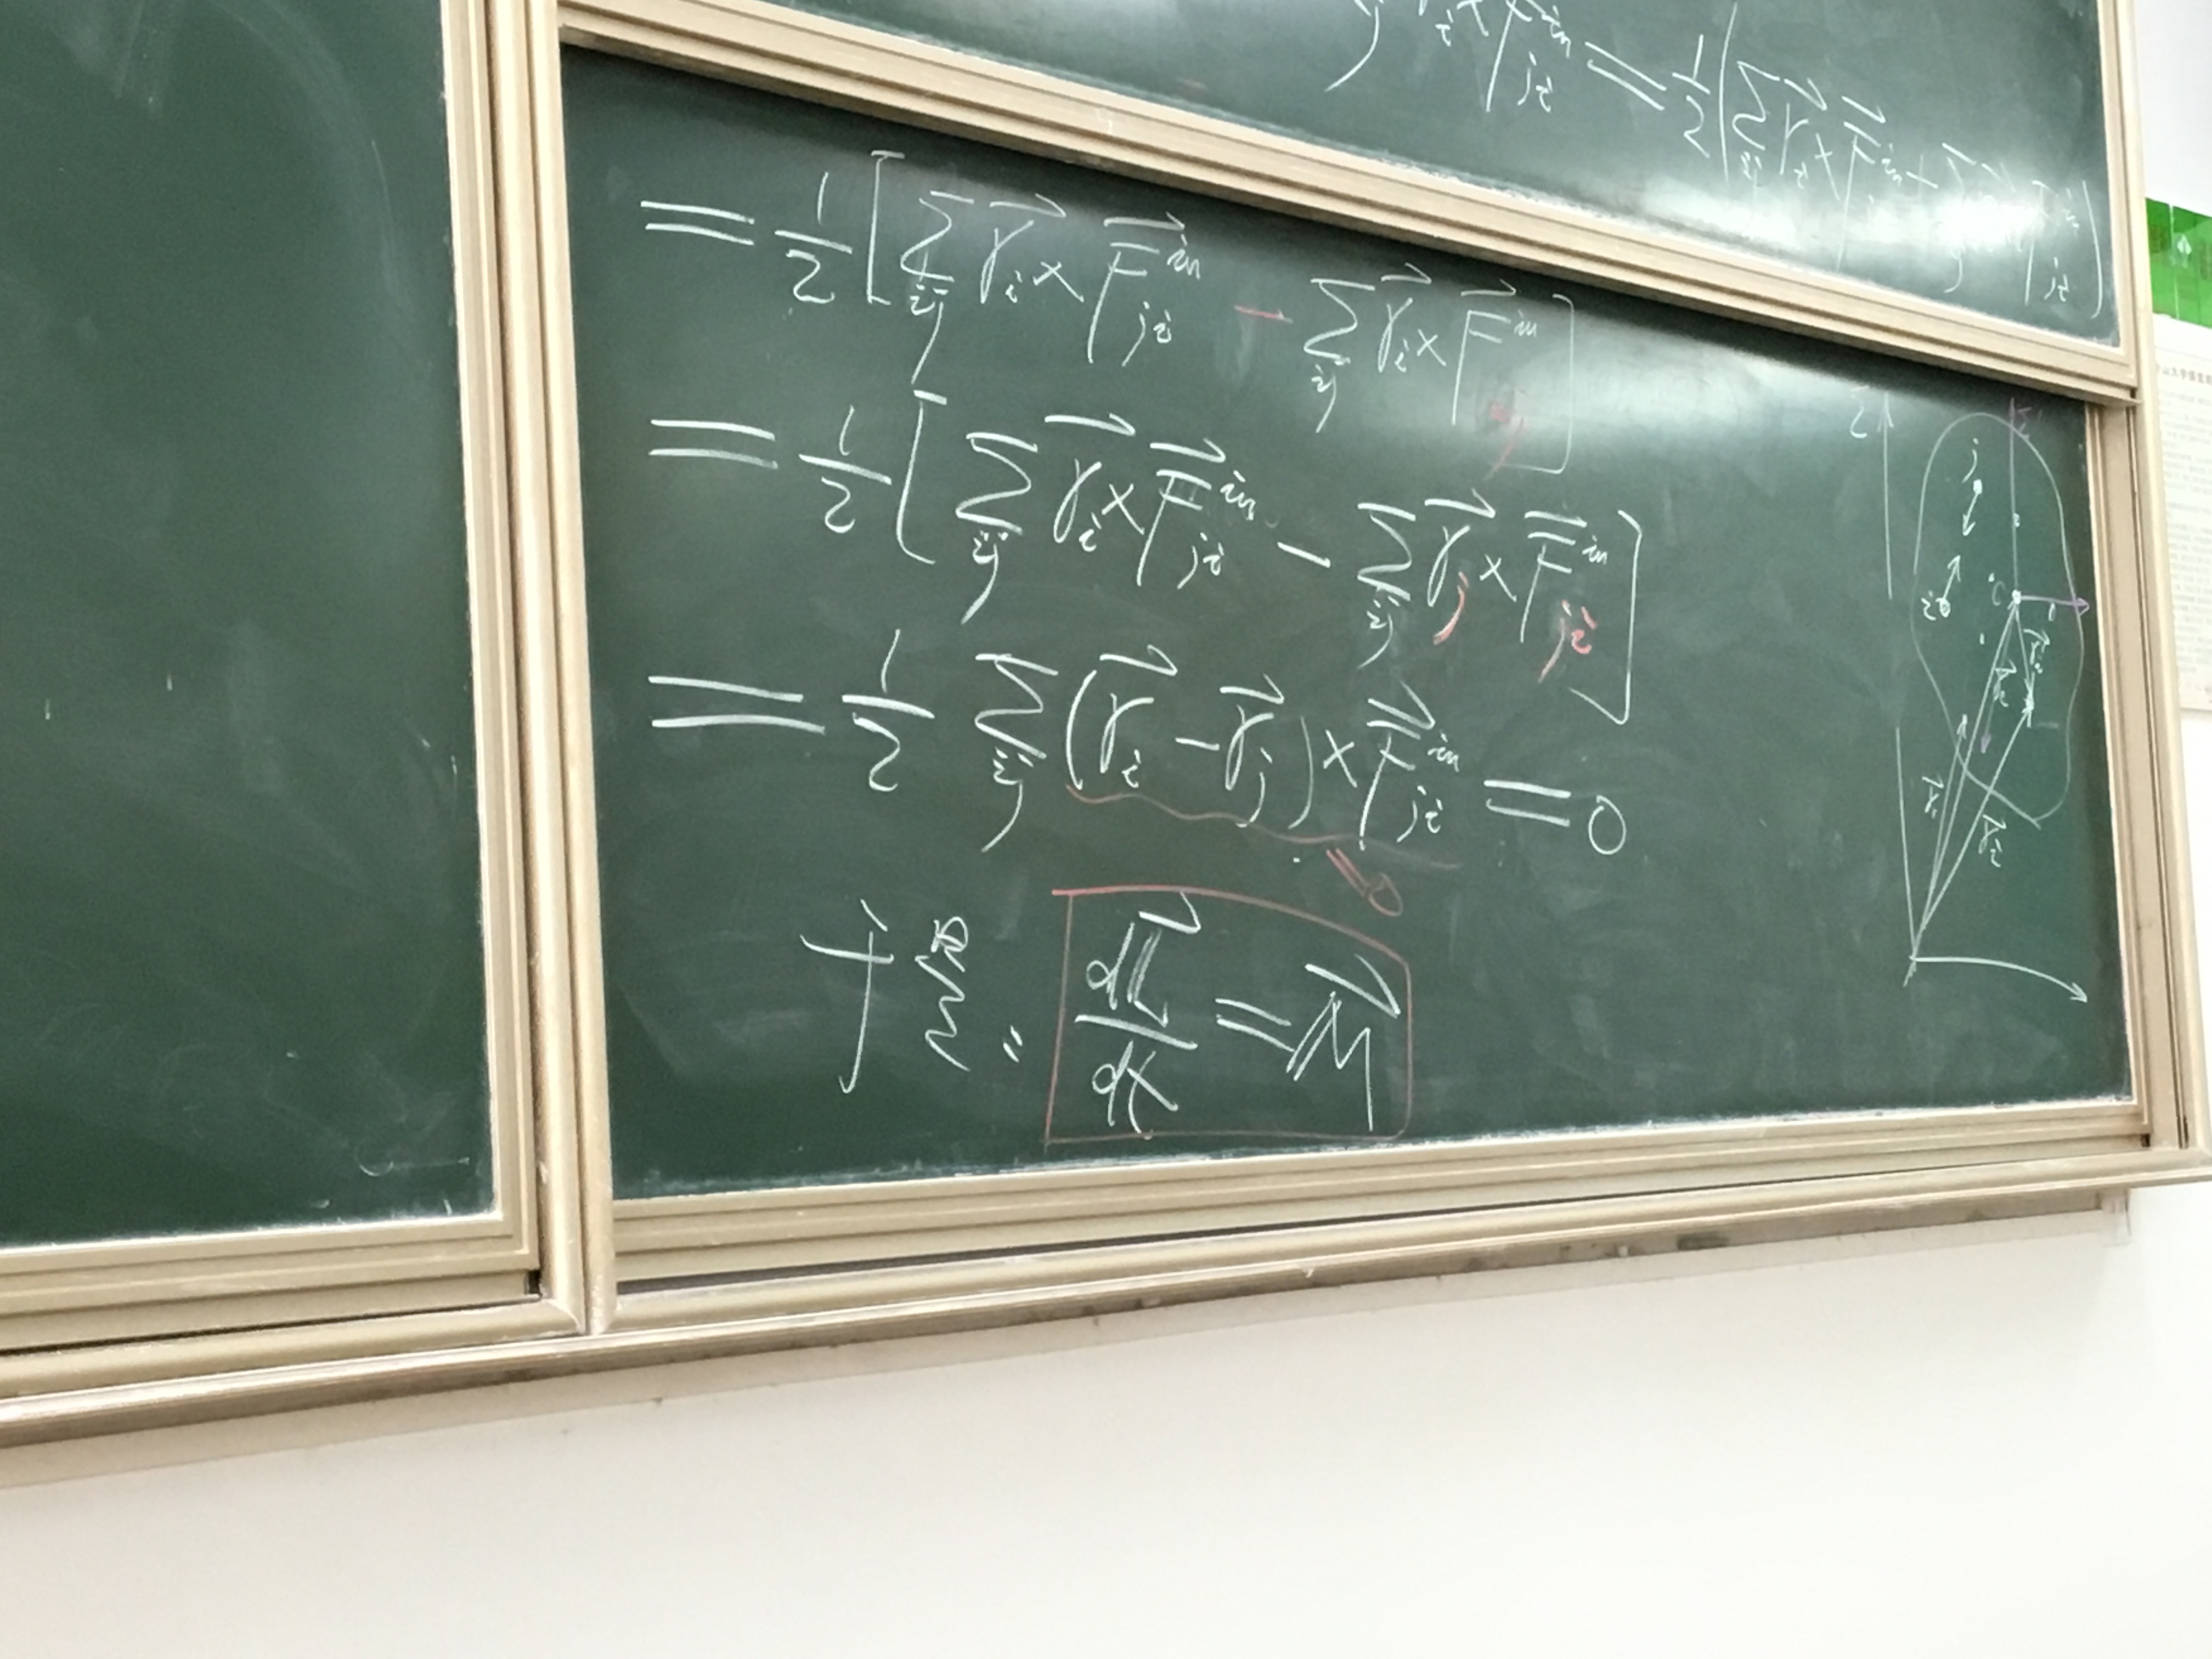 \sum_{ij} \vec{r}_i \times \vec{F}_{ji}^{in} = \frac{1}{2} ( \sum_{ij} \vec{r}_i \times \vec{F}_{ji}^{in} + \sum_{ij} \vec{r}_i \times \vec{F}_{ji}^{in} )
= \frac{1}{2} [ \sum_{ij} \vec{r}_i \times \vec{F}_{ji}^{in} - \sum_{ij} \vec{r}_i \times \vec{F}_{ij}^{in} ]
= \frac{1}{2} [ \sum_{ij} \vec{r}_i \times \vec{F}_{ji}^{in} - \sum_{ij} \vec{r}_j \times \vec{F}_{ji}^{in} ]
= \frac{1}{2} \sum_{ij} (\vec{r}_i - \vec{r}_j) \times \vec{F}_{ji}^{in} = 0
= 0
于是: \frac{d\vec{L}}{dt} = \vec{M}
z
j
i
c
\vec{r}_c
\vec{r}_i